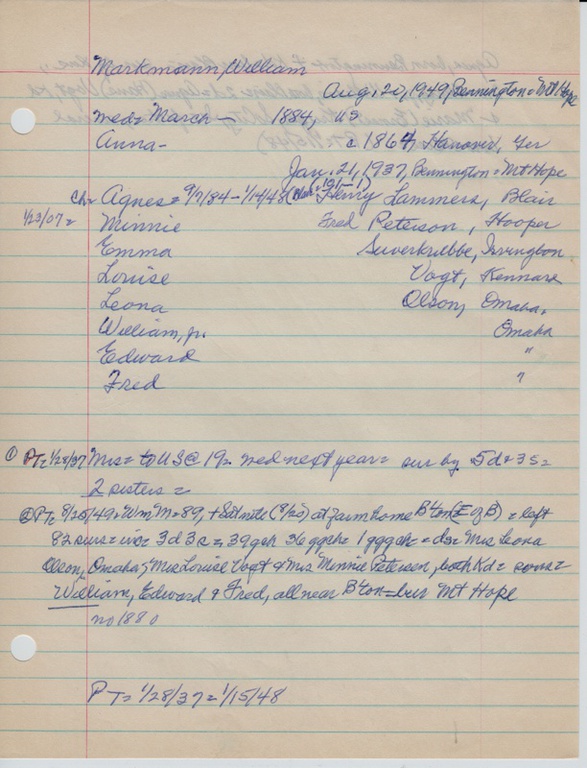 Markmann, William
Aug. 20, 1949, Bennington = Mt Hope
wed = March – 1884, US
Anna – c 1864, Hanover, Ger
Jan. 21, 1937, Bennington = Mt Hope
Ch = Agnes = 9/7/84 – 1/14/48 Henry Lammers, Blair
1/23/07 = Minnie Fred Peterson, Hooper
Emma Suverkrubbe, Irvington
Louise Vogt, Kennard
Leona Olson, Omaha,
William, jr. Omaha
Edward "
Fred "
① PT = 1/28/37 Mrs = to US @ 19 = wed next year = sur by 5d + 3s =
2 sisters =
② PT = 8/25/49 = Wm M = 89, + Sat nite (8/20) at farm home Bton (E of B) = left
82 survs = 3d 3s = 39 gch 36 ggch = 1 gggch = ds = Mrs Leona
Olson, Omaha; Mrs Louise Vogt & Mrs Minnie Petersen, both Kd = sons =
William, Edward & Fred, all near Bton = bur Mt Hope
no 1880
PT = 1/28/37 = 1/15/48